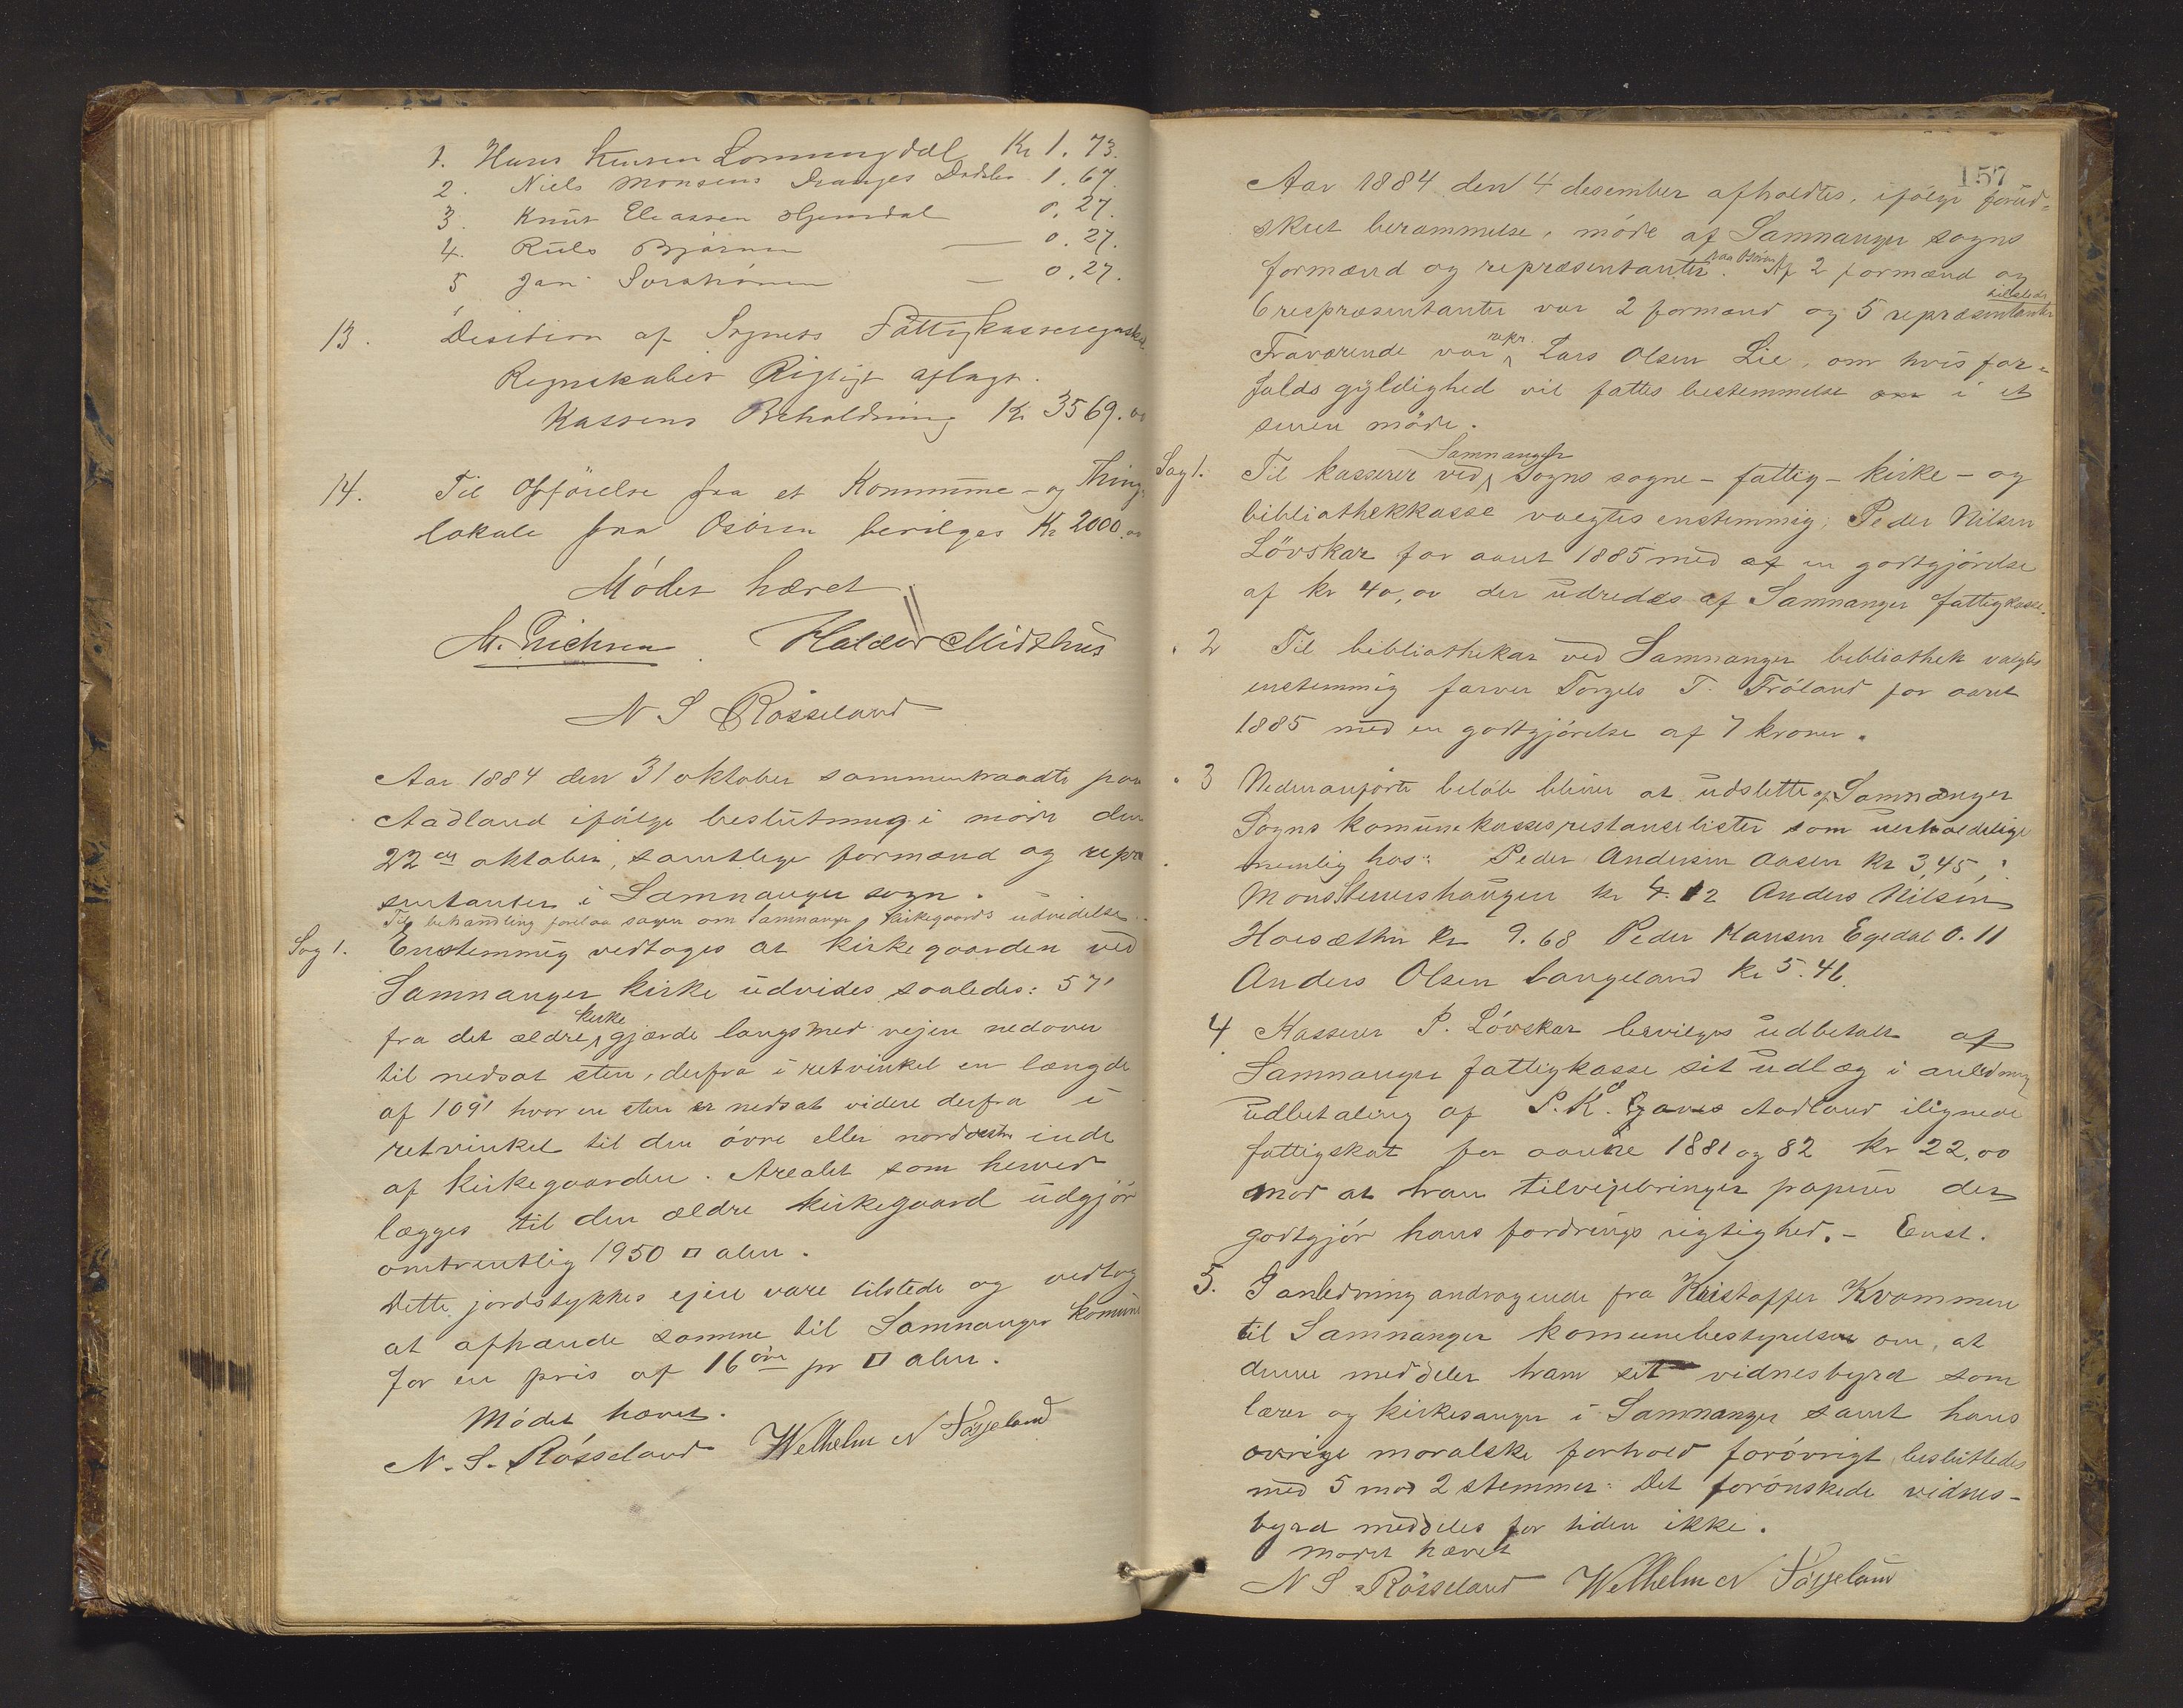 1. Hans Larsen Lønningdal Kr 1.73.
2. Niels Monsens Dranges Dødsbo 1.67.
3. Knut Eliassen Hjemdal 0.27.
4. Niels Bjørnen — 0.27.
5 Jan Sørstrønen — 0.27.
13. Desition af Sognets Fattigkasseregnskab
Regnskabet Rigtigt aflagt.
Kassens Beholdning Kr 3569.00
14. Til Opførelse fra et Kommune- og Thing-
lokale paa Osøren bevilges Kr 2000.00
Mødet hævet
M. Erichsen Haldor Midthus
N S Røsseland
Aar 1884 den 31 oktober sammentraadte paa
Aadland ifølge beslutning i møde den
22de oktober, samtlige formænd og repræ
sentanter i Samnanger sogn.
Til behandling forelaa sagen om Samnanger kirkegaards udvidelse.
Sag 1. Enstemmig vedtoges at kirkegaarden ved
Samnanger kirke udvides saaledes: 57'
kirke
fra det ældre gjærde langsmed vejen nedover
til nedsat sten, derfra i retvinkel en længde
af 109' hvor en sten er nedsat videre derfra i
retvinkel til den øvre eller nordvestre inde
af kirkegaarden. Arealet som herved
lægges til den ældre kirkegaard udgjør
omtrentlig 1950 □ alen.
Dette jordstykkes ejere vare tilstede og vedtog
at afhænde samme til Samnanger komune
for en pris af 16 øre pr □ alen.
Mødet hævet.
N. S. Røsseland Welhelm N Tøsseland
157
Aar 1884 den 4 desember afholdtes, ifølge forud-
skeet berammelse, møde af Samnanger sogns
formænd og repræsentanter. Af 2 formænd og
tilstede
6 respræsentanter var 2 formænd og 5 repræsentanter
repr.
Fraværende var Lars Olsen Lie, om hvis for-
falds gyldighed vil fattes bestemmelse om i et
senere møde.
Samnanger
Sag 1. Til kasserer ved Sogns sogne- fattig- kirke- og
bibliothekkasse valgtes enstemmig: Peder Nilsen
Løvskar for aaret 1885 med af en godtgjørelse
af kr 40,00 der udredes af Samnanger fattigkasse.
" 2 Til bibliothekar ved Samnanger bibliothek valgtes
enstemmig farver Torgels T. Frøland for aaret
1885 med en godtgjørelse af 7 kroner.
" 3 Nedenanførte beløb bliver at udslette af Samnanger
Sogns komunekassesrestanselister som uerholdelige
nemlig hos: Peder Andersen Aasen kr 3,45,
Mons Steinershaugen kr 4.12 Anders Nilsen
Hoesæther kr 9.68 Peder Hansen Egedal 0.11
Anders Olsen Langeland kr 5.41.
4 Kasserer P. Løvskar bevilges udbetalt af
Samnanger fattigkasse sit udlæg i anledning
udbetaling af P. K. Aadland ilignede
fattigskat for aarene 1881 og 82 kr 22.00
mod at han tilvejebringer papirer der
godtgjør hans fordrings rigtighed. - Enst.
5. I anledning andragende fra Kristoffer Kvammen
til Samnanger komunebestyrelse om, at
denne meddeler ham set vidnesbyrd som
lærer og kirkesanger i Samnanger samt hans
øvrige moralske forhold forøvrigt besluttedes
med 5 mod 2 stemmer: Det forønskede vidnes-
byrd meddeles for tiden ikke.
Mødet hævet
N S Røsseland Welhelm N Tøsseland